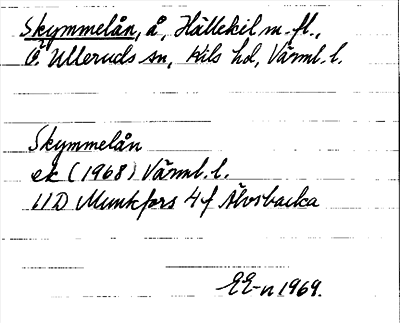 Skymmelån, å, Hällekil m.fl.,
Ö. Ulleruds sn, Kils hd, Värml. l.
Skymmelån
ek (1968) Värml. l.
11D Munkfors 4f Älvsbacka
EE-n 1969.